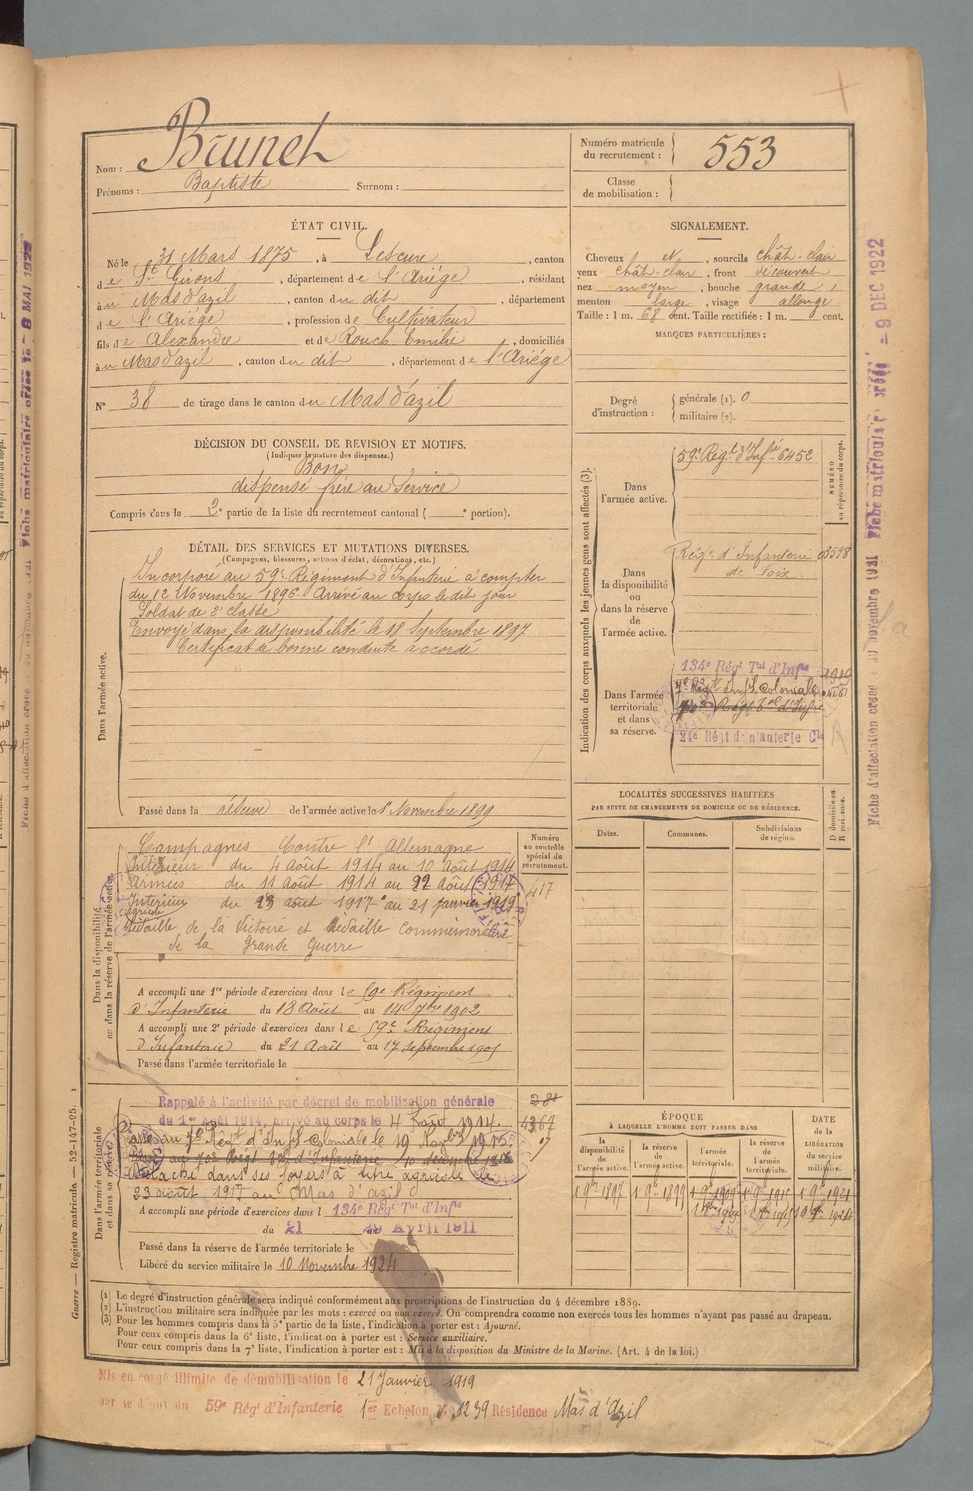 Nom : Brunet
Prénoms : Baptiste Surnom :
Numéro matricule du recrutement : 553
Classe de mobilisation :
ÉTAT CIVIL.
Né le 31 Mars 1875, à Lescure, canton
de St Girons, département de l'Ariége, résidant
à u Mas d'azil, canton du dit, département
de l'Ariége, profession de Cultivateur
fils de Alexandre et de Rouch Emilie, domiciliés
à u Mas d'azil, canton du dit, département de l'Ariége
N° 38 de tirage dans le canton du Mas d'azil
SIGNALEMENT.
Cheveux N, sourcils chât-clair
yeux chât-clair, front découvert
nez moyen, bouche grande,
menton large, visage allongé
Taille : 1 m. 68 cent. Taille rectifiée : 1 m. cent.
MARQUES PARTICULIÈRES :
Degré d'instruction : générale (1). 0
militaire (2).
DÉCISION DU CONSEIL DE REVISION ET MOTIFS.
(Indiquer la nature des dispenses.)
Bon
dispensé frère au Service
Compris dans la 2e partie de la liste du recrutement cantonal ( e portion).
DÉTAIL DES SERVICES ET MUTATIONS DIVERSES.
(Campagnes, blessures, actions d'éclat, décorations, etc.)
Dans l'armée active.
Incorporé au 59e Régiment d'Infanterie à compter
du 12 Novembre 1896. Arrivé au corps le dit jour
Soldat de 2e classe
Envoyé dans la disponibilité le 18 Septembre 1897
Certificat de bonne conduite accordé
Passé dans la réserve de l'armée active le 1r Novembre 1899
Indication des corps auxquels les jeunes gens sont affectés (3).
NUMÉRO au répertoire du corps.
Dans l'armée active.
59e Régt d'Inftie 6452
Dans la disponibilité ou dans la réserve de l'armée active.
Régt d'Infanterie 03598
de Foix
Dans l'armée territoriale et dans sa réserve.
134e Régt Tal d'Inftie
7e Régt Inf Coloniale
24e Régt d'Infanterie Cle
LOCALITÉS SUCCESSIVES HABITÉES
PAR SUITE DE CHANGEMENTS DE DOMICILE OU DE RÉSIDENCE.
Dates. Communes. Subdivisions de région. D domicile ou R résidence.
Dans la disponibilité ou dans la réserve de l'armée active
Numéro au contrôle spécial du recrutement.
Campagnes Contre l'Allemagne
Intérieur du 4 Août 1914 au 10 Août 1914
Armées du 11 Août 1914 au 22 Août 1917
Intérieur du 23 août 1917 au 21 janvier 1919
agricole
Médaille de la Victoire et Médaille Commémorative
de la Grande Guerre
417
A accompli une 1re période d'exercices dans le 59e Régiment
d'Infanterie du 18 Août au 14 7bre 1902
A accompli une 2e période d'exercices dans le 59e Régiment
d'Infanterie du 21 Août au 17 Septembre 1905
Passé dans l'armée territoriale le
Dans l'armée territoriale et dans sa réserve
Rappelé à l'activité par décret de mobilisation générale
du 1er Août 1914, arrivé au corps le 4 Août 1914.
Passé au 7e Régt d'Inf Coloniale le 19 Novbre 1915
Détaché dans ses foyers à titre agricole le
23 août 1917 au Mas d'azil
A accompli une période d'exercices dans l 134e Régt Tal d'Inftie
du 21 au 29 Avril 1911
Passé dans la réserve de l'armée territoriale le
Libéré du service militaire le 10 Novembre 1924
ÉPOQUE
À LAQUELLE L'HOMME DOIT PASSER DANS
la disponibilité de l'armée active.
la réserve de l'armée active.
l'armée territoriale.
la réserve de l'armée territoriale.
DATE de la LIBÉRATION du service militaire.
1 9bre 1897 1 9bre 1899 1 9bre 1909 1 9bre 1915 1 9bre 1921
Guerre — Registre matricule. — 52-147-25.
(1) Le degré d'instruction générale sera indiqué conformément aux prescriptions de l'instruction du 4 décembre 1889.
(2) L'instruction militaire sera indiquée par les mots : exercé ou non exercé. On comprendra comme non exercés tous les hommes n'ayant pas passé au drapeau.
(3) Pour les hommes compris dans la 5e partie de la liste, l'indication à porter est : Ajourné.
Pour ceux compris dans la 6e liste, l'indication à porter est : Service auxiliaire.
Pour ceux compris dans la 7e liste, l'indication à porter est : Mis à la disposition du Ministre de la Marine. (Art. 4 de la loi.)
Mis en congé illimité de démobilisation le 21 Janvier 1919
par le dépôt du 59e Régt d'Infanterie 1er Echelon No 1239 Résidence Mas d'Azil
Fiche d'affectation créée 30 novembre 1921 Fiche matriculaire créée 9 DEC 1922
Fiche matriculaire créée le 8 MAI 1922